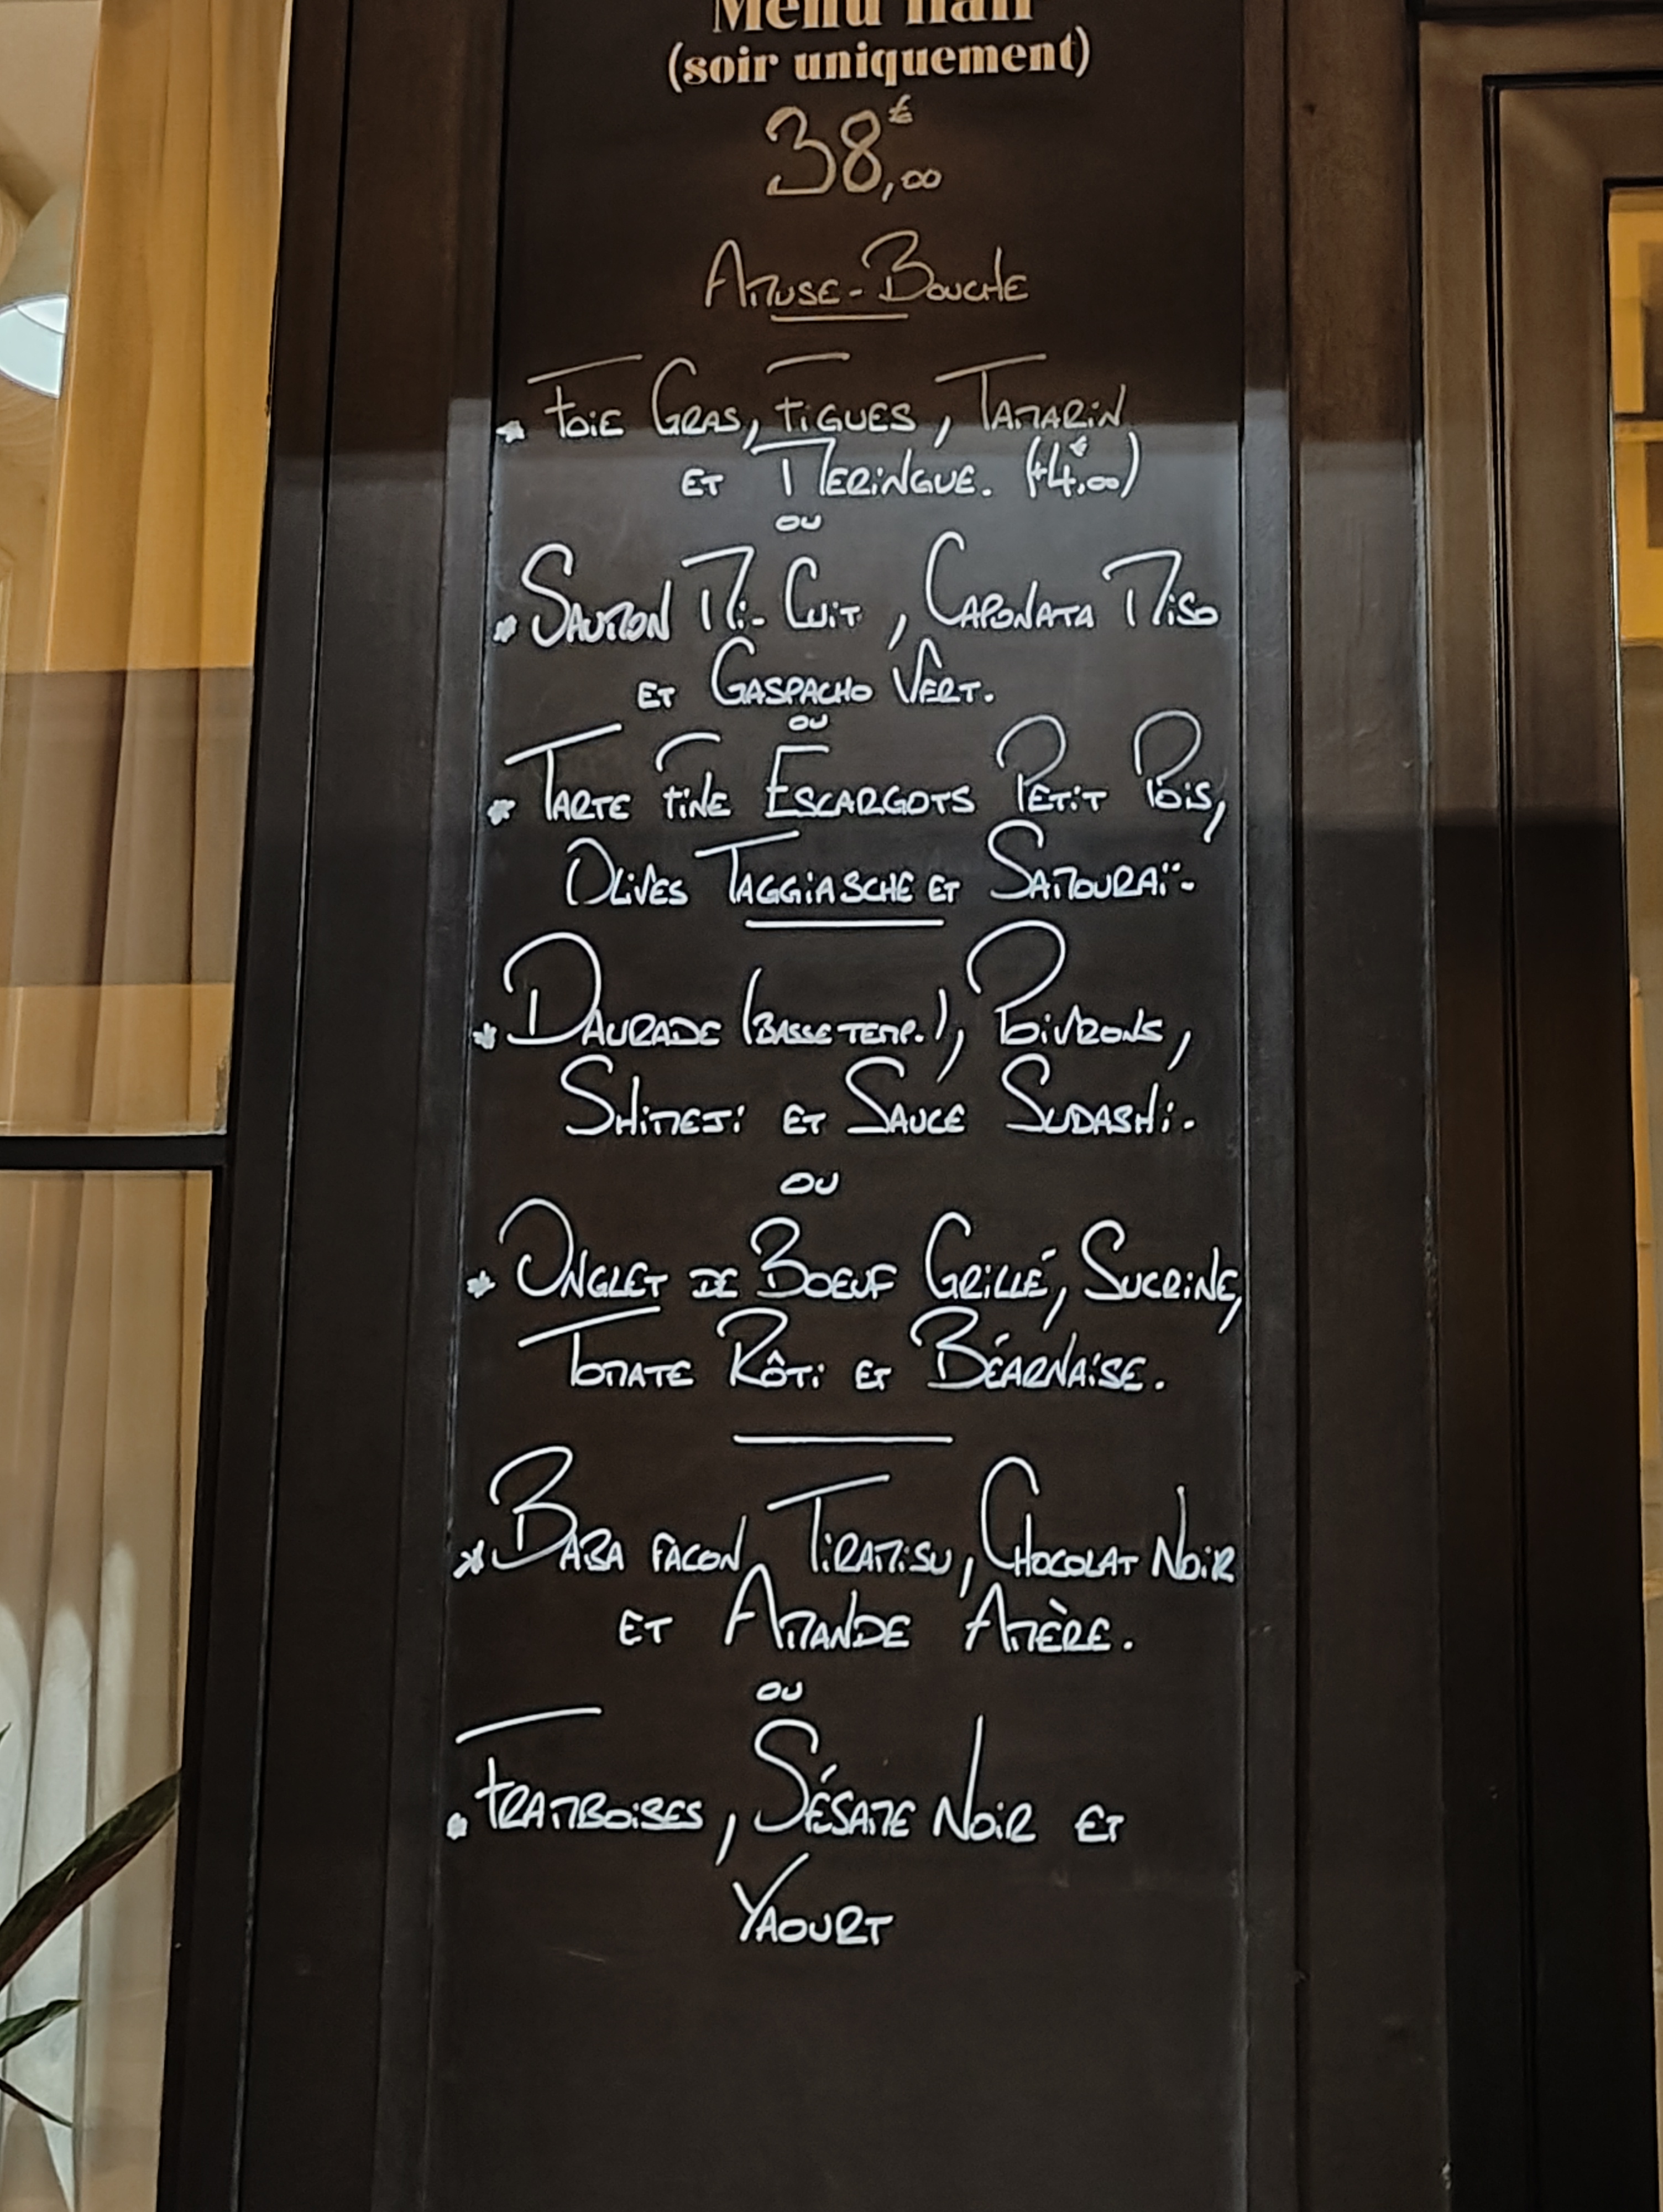 Menu
(soir uniquement)
38,00€
Amuse-Bouche
* Foie Gras, Figues, Tamarin
et Meringue. (+4,00€)
ou
* Saumon Mi-Cuit, Caponata Miso
et Gaspacho Vert.
ou
* Tarte Fine Escargots Petit Pois,
Olives Taggiasche et Samouraï.
* Daurade (basse temp.), Poivrons,
Shimeji et Sauce Sudashi.
ou
* Onglet de Boeuf Grillé, Sucrine,
Tomate Rôti et Béarnaise.
* Baba facon Tiramisu, Chocolat Noir
et Amande Amère.
ou
* Framboises, Sésame Noir et
Yaourt